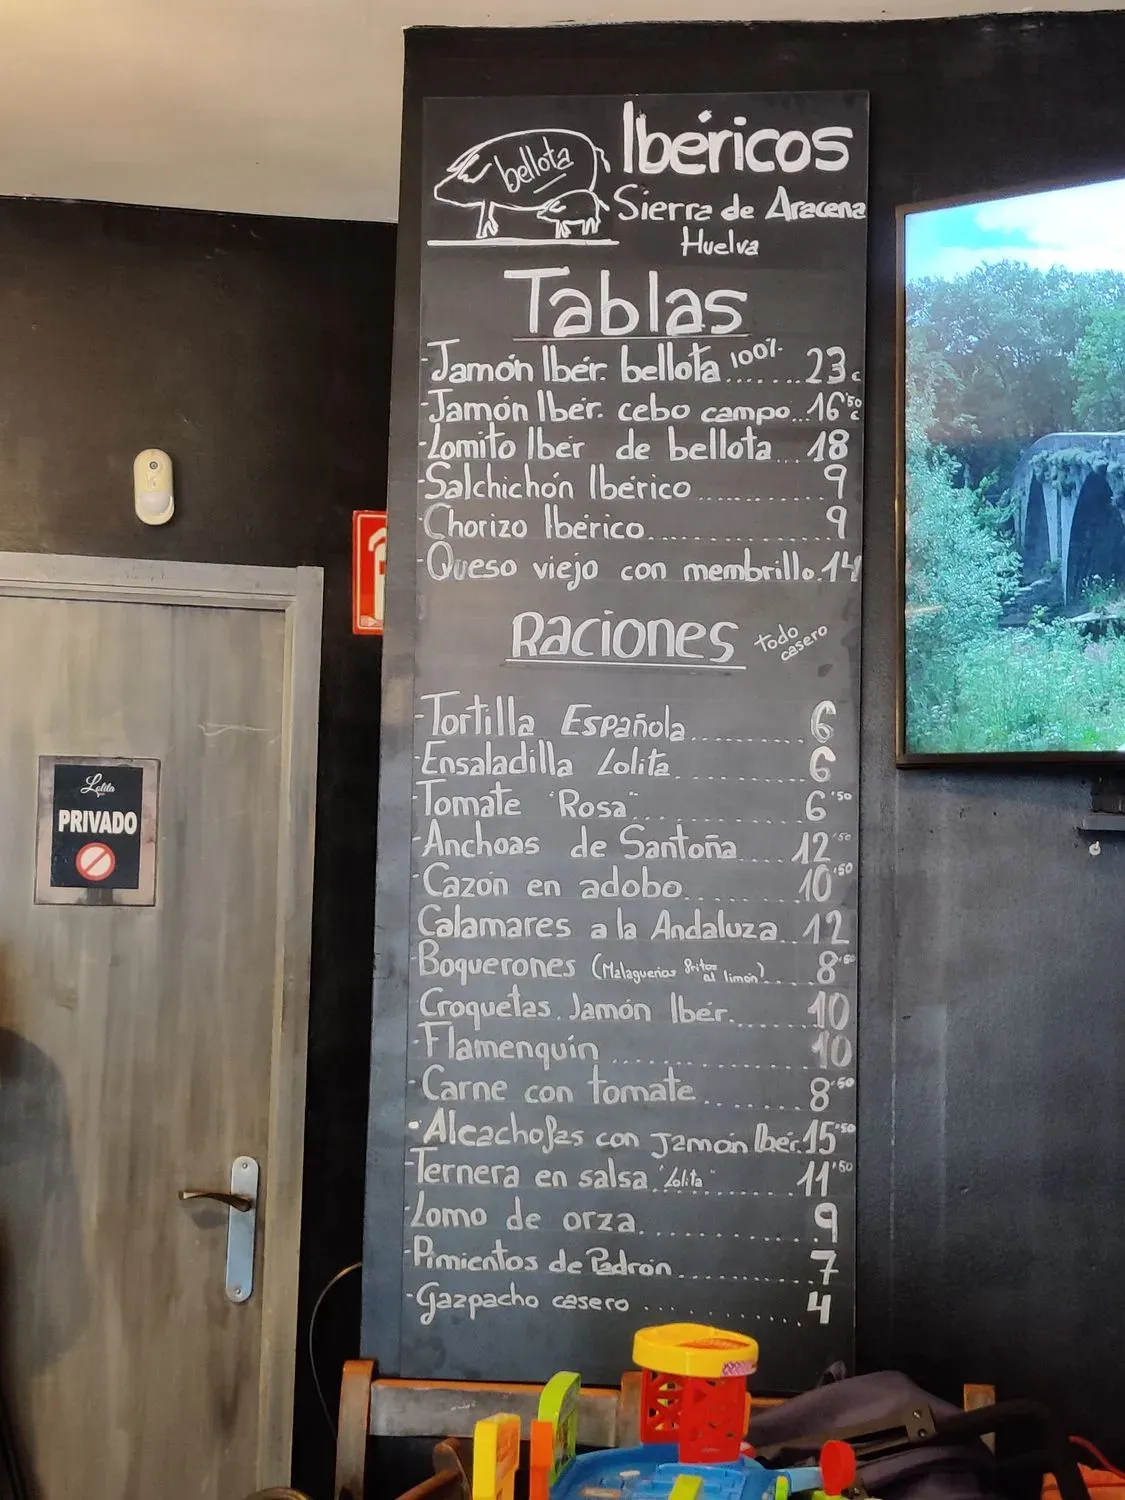 bellota
Ibéricos
Sierra de Aracena
Huelva
Tablas
-Jamón Ibér. bellota 100%.......23€
-Jamón Ibér. cebo campo...16'50€
-Lomito Ibér de bellota...18
-Salchichón Ibérico...........9
-Chorizo Ibérico................9
-Queso viejo con membrillo.14
Raciones todo casero
-Tortilla Española..............6
-Ensaladilla Lolita..............6
-Tomate "Rosa"..................6'50
-Anchoas de Santoña....12'50
-Cazón en adobo............10'50
-Calamares a la Andaluza..12
-Boquerones (Malagueños fritos al limón)....8'50
-Croquetas Jamón Ibér.......10
-Flamenquín....................10
-Carne con tomate............8'50
-Alcachofas con jamón Ibér.15'50
-Ternera en salsa "Lolita".......11'50
-Lomo de orza..................9
-Pimientos de Padrón............7
-Gazpacho casero...............4
Lolita
PRIVADO